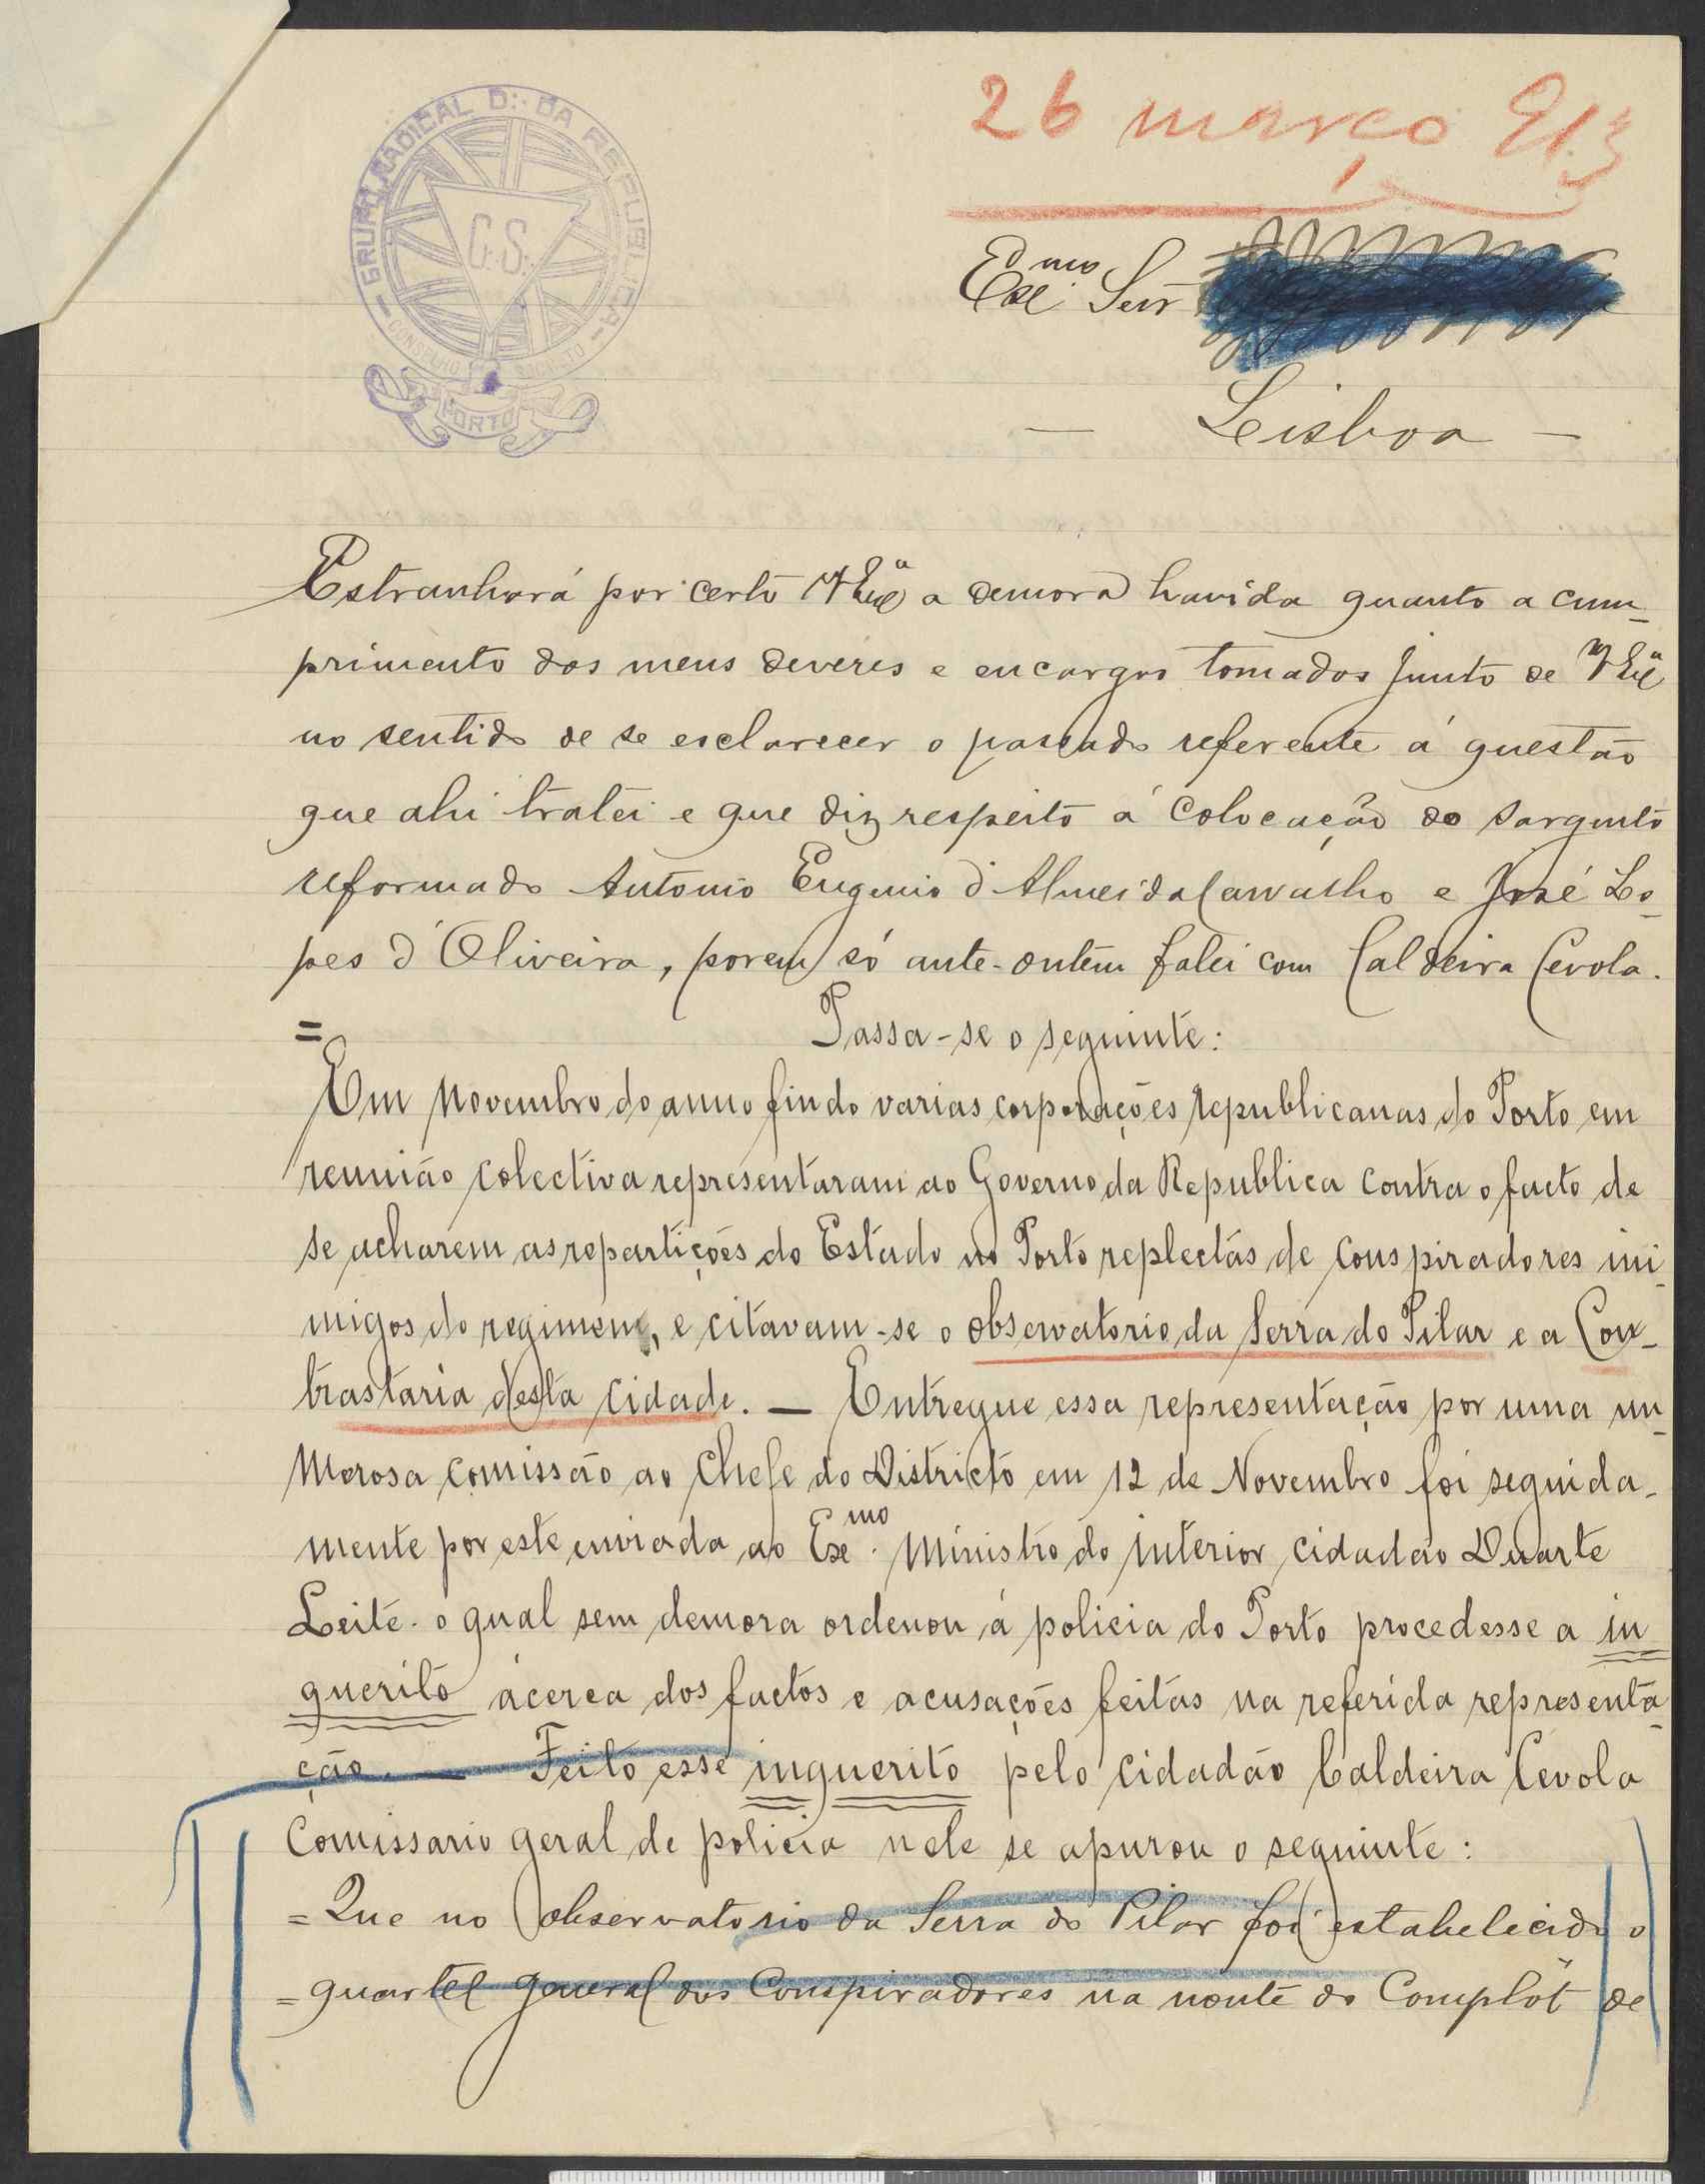 GRUPO RADICAL D:. DA REPUBLICA
C:.S:.
CONSELHO SECRETO
PORTO
26 março 913
Exmo Snr
— Lisboa —
Estranhará por certo V Exª a demora havida quanto a cum-
primento dos meus deveres e encargos tomados junto de V Exª
no sentido de se esclarecer o passado referente á questão
que ahi tratei e que diz respeito á colocação do sargento
reformado Antonio Eugenio d'Almeida Carvalho e José Lo-
pes d'Oliveira, porem só ante-ontem falei com Caldeira Cevola.
= Passa-se o seguinte:
Em Novembro do anno findo varias corporações republicanas do Porto em
reunião colectiva representaram ao Governo da Republica contra o facto de
se acharem as repartições do Estado no Porto replectas de conspiradores ini-
migos do regimem, e citavam-se o observatorio da Serra do Pilar e a Con-
trastaria desta cidade. — Entregue essa representação por uma nu-
merosa comissão ao Chefe do Districto em 12 de Novembro foi seguida-
mente por este enviada ao Exmo. Ministro do interior cidadão Duarte
Leite. o qual sem demora ordenou á policia do Porto procedesse a in
querito ácerca dos factos e acusações feitas na referida representa-
ção. — Feito esse inquerito pelo cidadão Caldeira Cevola
Comissario geral de policia nele se apurou o seguinte:
= Que no observatorio da Serra do Pilar foi estabelecido o
= quartel general dos Conspiradores na noute do Complôt de